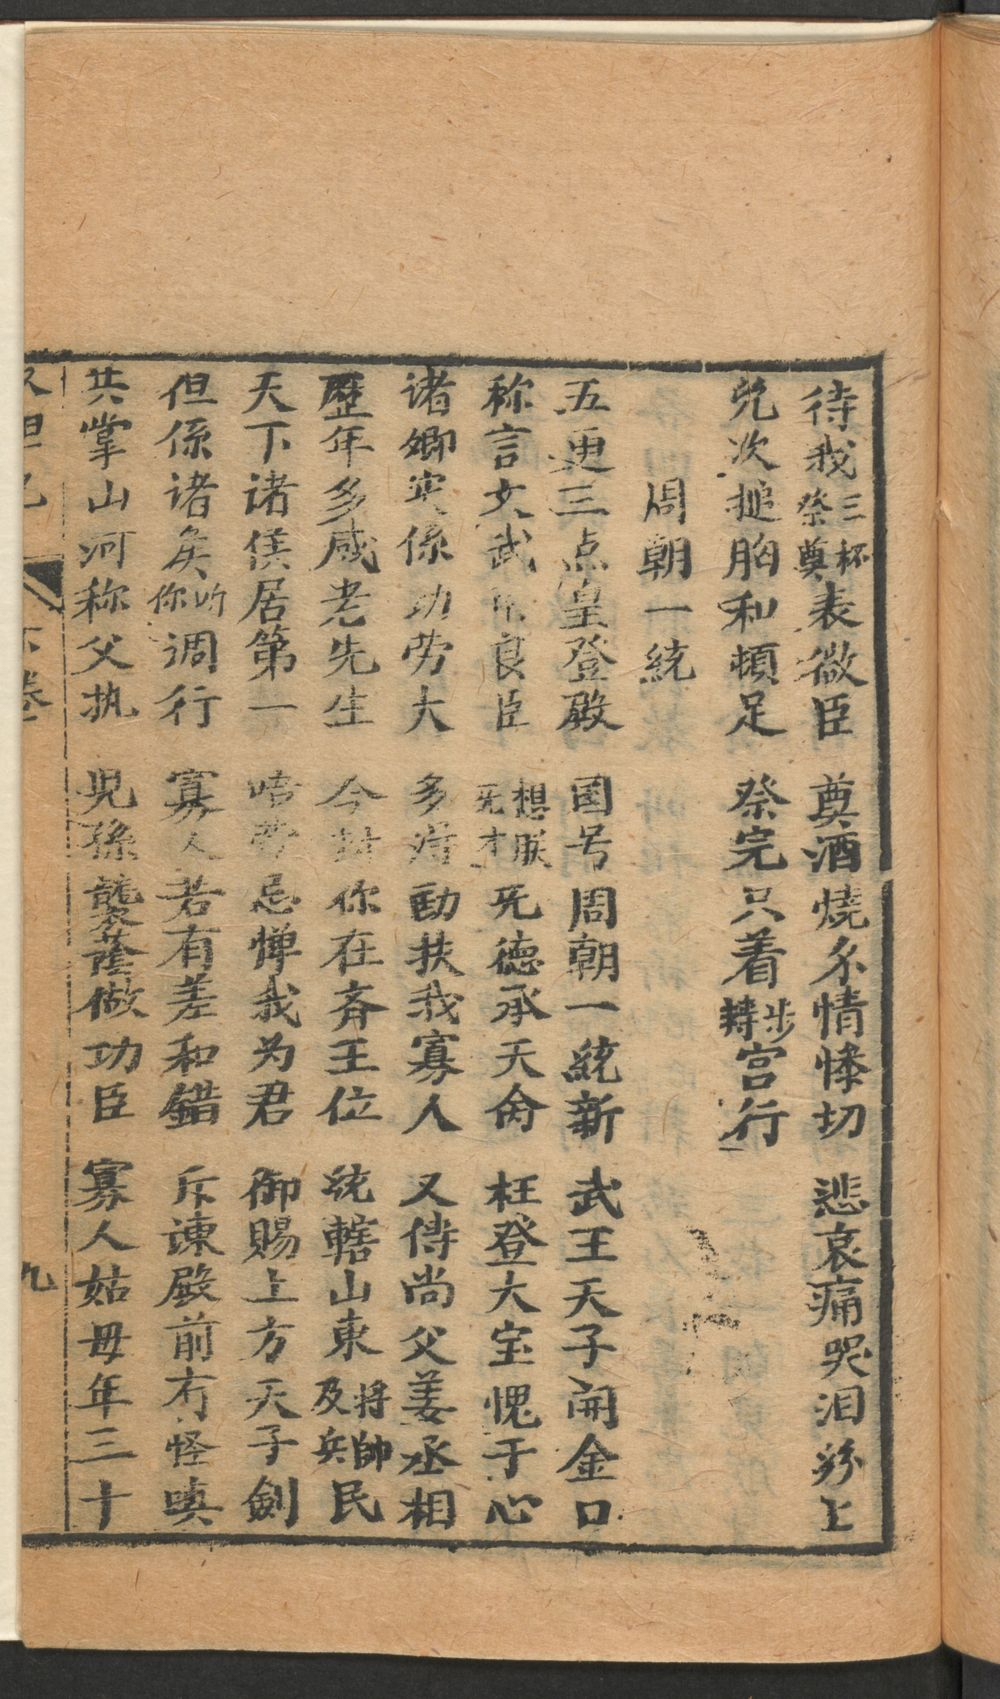 待我三杯祭奠表微臣　奠酒燒糸情悽切　悲哀痛哭泪紛上
兜次搥胸和頓足　祭完只着步轉宫行
周朝一統
五更三点皇登殿　国号周朝一統新　武王天子開金口
称言文武衆良臣　想朕旡才旡德承天命　枉登大宝愧于心
诸卿实係功劳大　多为勤扶我寡人　又傳尚父姜丞相
歷年多咸老先生　今封你在斉王位　統轄山東及兵將帥民
天下诸侯居第一　唔劳忌惮我为君　御賜上方天子劍
但係诸矦听你調行　寡人若有差和錯　斥諫殿前冇怪嗔
共掌山河称父执　児孫襲蔭做功臣　寡人姑毋年三十
妲己
六卷
九